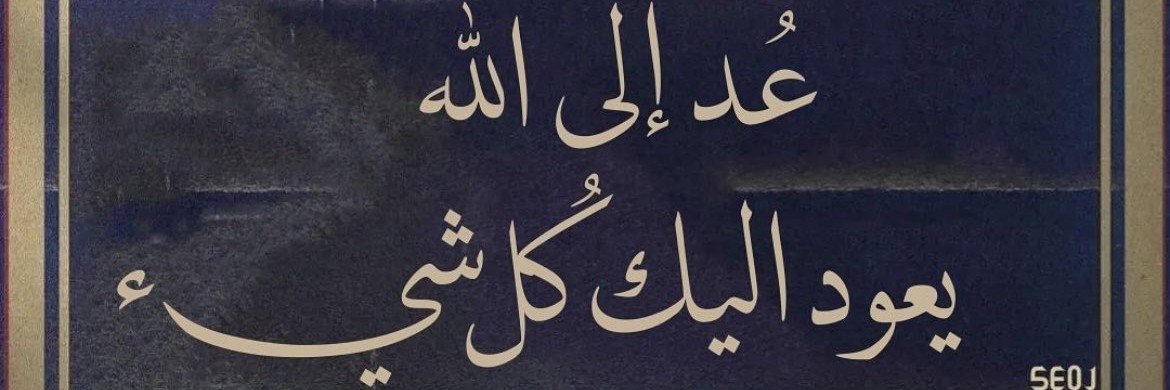 عُد إلى الله
يعود اليك كُل شيء
SEOJ